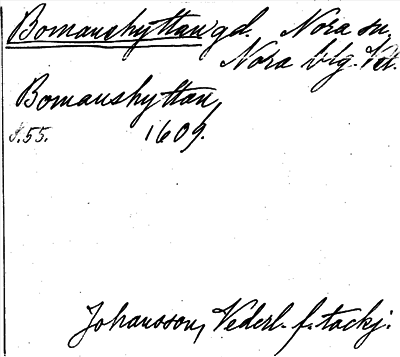 Bomanshyttan gd. Nora sn,
Nora blg. Vstl.
Bomanshyttan,
s. 55. 1609.
Johansson, Vederl. f. tackj.